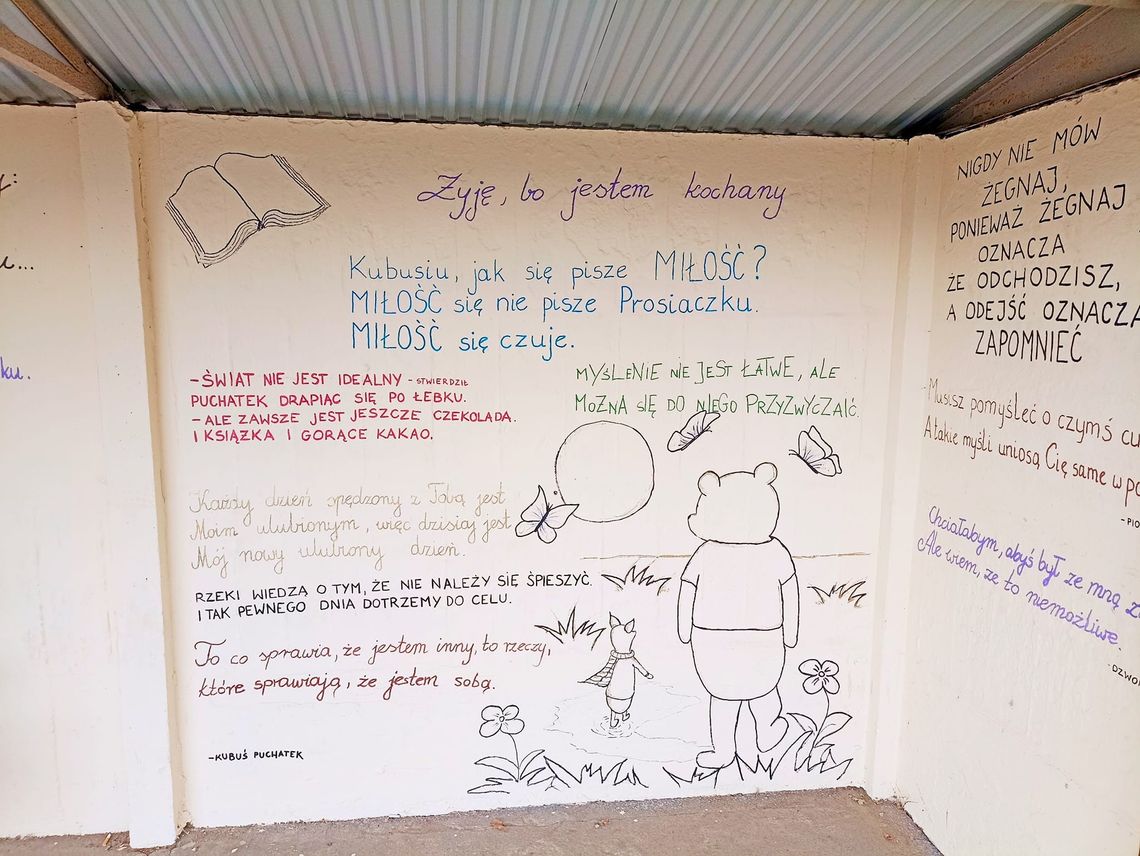 Żyję, bo jestem kochany
Kubusiu, jak się pisze MIŁOŚĆ?
MIŁOŚĆ się nie pisze Prosiaczku.
MIŁOŚĆ się czuje.
-ŚWIAT NIE JEST IDEALNY - STWIERDZIŁ
PUCHATEK DRAPIĄC SIĘ PO ŁEBKU.
-ALE ZAWSZE JEST JESZCZE CZEKOLADA.
I KSIĄŻKA I GORĄCE KAKAO.
MYŚLENIE NIE JEST ŁATWE, ALE
MOŻNA SIĘ DO NIEGO PRZYZWYCZAIĆ.
Każdy dzień spędzony z Tobą jest
Moim ulubionym, więc dzisiaj jest
Mój nowy ulubiony dzień.
RZEKI WIEDZĄ O TYM, ŻE NIE NALEŻY SIĘ ŚPIESZYĆ.
I TAK PEWNEGO DNIA DOTRZEMY DO CELU.
To co sprawia, że jestem inny, to rzeczy,
które sprawiają, że jestem sobą.
-KUBUŚ PUCHATEK
NIGDY NIE MÓW
ŻEGNAJ,
PONIEWAŻ ŻEGNAJ
OZNACZA
ŻE ODCHODZISZ,
A ODEJŚĆ OZNACZA
ZAPOMNIEĆ
Musisz pomyśleć o czymś
A takie myśli uniosą Cię same w
Chciałabym, abyś był ze mną
Ale wiem, że to niemożliwe.